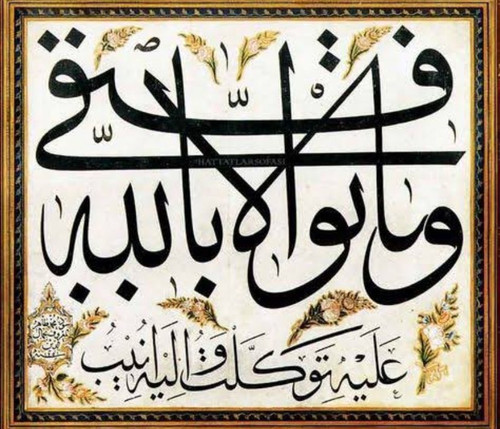 وما توفيقي الا بالله
عليه توكلت واليه انيب
HATTATLARSOFASI